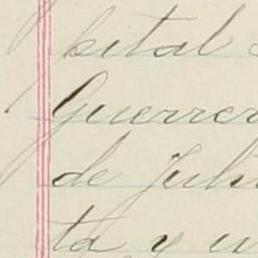 pital
Guerrer
de Juli
ta y u